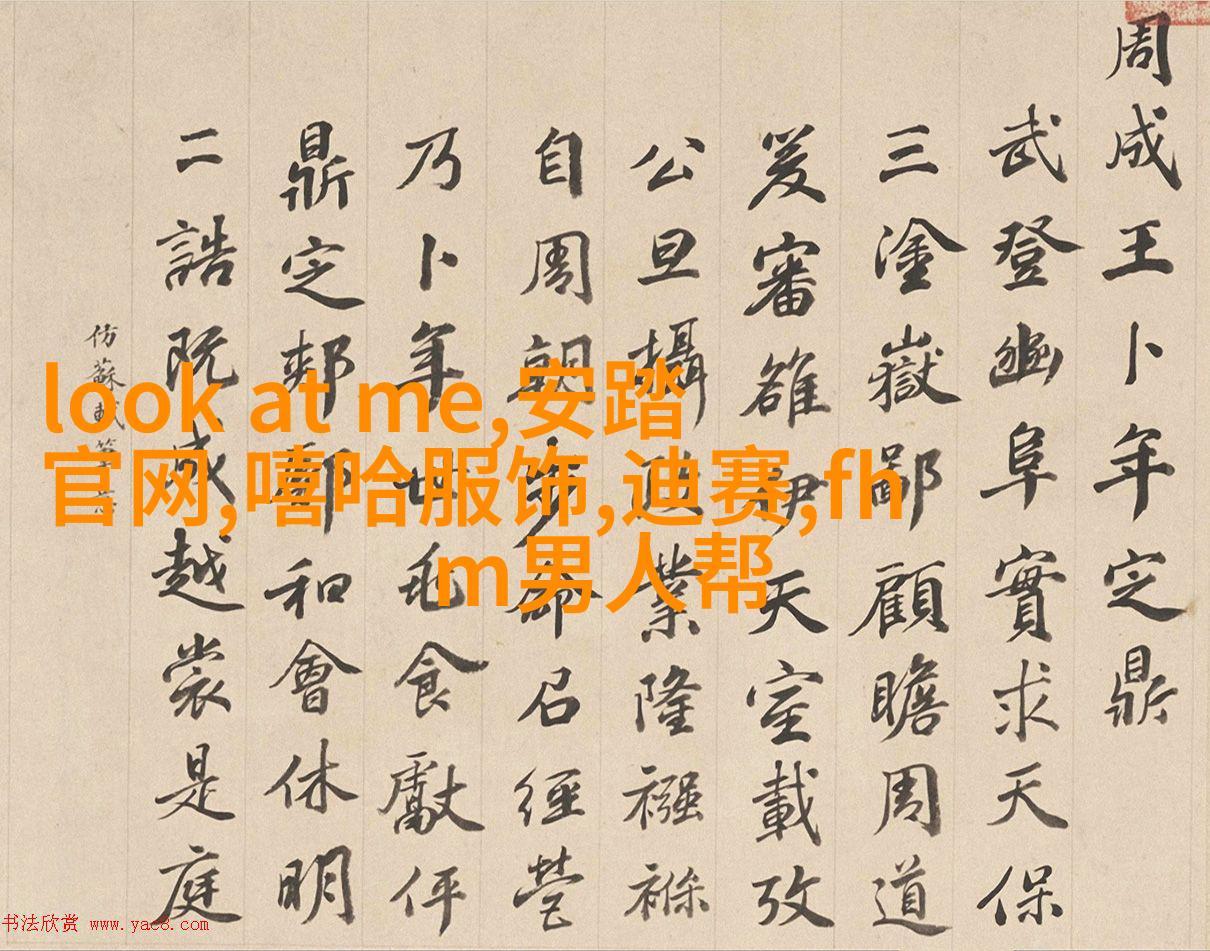 周成王卜年定鼎
武登幽阜實求天保
三塗嶽鄙顧瞻周道
爰審雒伊天室載攷
公旦攝業隆襁褓
自周朝步命召經營
乃卜年世兆食獻伻
鼎定郟鄏和會休明
二誥既成越裳是庭
仿蘇軾筆意
look at me,安踏
官网,嘻哈服饰,迪赛,fh
m男人帮
书法欣赏 www.yac8.com